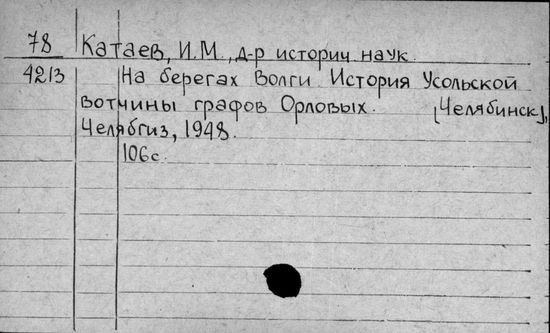 78 Катаев, И.М., д-р историч. наук.
4213 На берегах Волги. История Усольской
вотчины графов Орловых. [Челябинск],
Челябгиз, 1948.
106с.